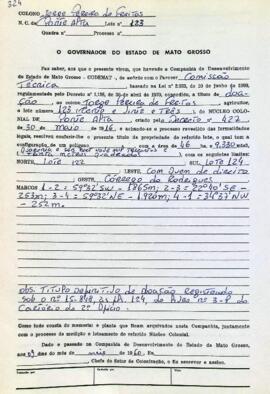 324
COLONO Jorge Pereira de Freitas
N. C. de Ponte Alta Lote n° 123
Quadra n° Processo n°
O GOVERNADOR DO ESTADO DE MATO GROSSO
Faz saber, aos que o presente virem, que havendo a Companhia de Desenvolvimento
do Estado de Mato Grosso - CODEMAT -, de acôrdo com o Parecer Comissão
Técnica
regulamentada pelo Decreto n° 1.138, de 30 de abril de 1970, concedido, a título doa-
ção, ao Jorge Pereira de Freitas, agricultor,
o lote 123 (cento e vinte e três), do NÚCLEO COLO-
NIAL DE Ponte Alta, criado pelo Decreto n° 427
de 30 de maio de
resolveu mandar-lhe o presente título de propriedade do referido lote, o qual tem a con-
figuração de um polígono com a área de 46 ha 9.330 m2
com os seguintes limites:
NORTE, Lote 122 SUL, Lote 124
ESTE, Com Quem de direito
OESTE, Córrego do Rodrigues
MARCOS 1-2 = 59°32'SW - 1865m; 2-3 = 22°40'SE -
263m; 3-4 = 59°32'NE - 1920m; 4-1 = 34°37'NW
- 252m.
obs: Título definitivo de doação registrado
sob o n° 15.848, às fl. 124, do Livro n° 3-P do
Cartório do 2° Ofício.
Como tudo consta do memorial e planta que ficam arquivados nesta Companhia, juntamente
com o processo de medição e loteamento do referido Núcleo Colonial.
Dado e passado na Companhia de Desenvolvimento do Estado de Mato Grosso,
aos do mês de
Chefe do Setor de Colonização, o fiz escrever e assino.